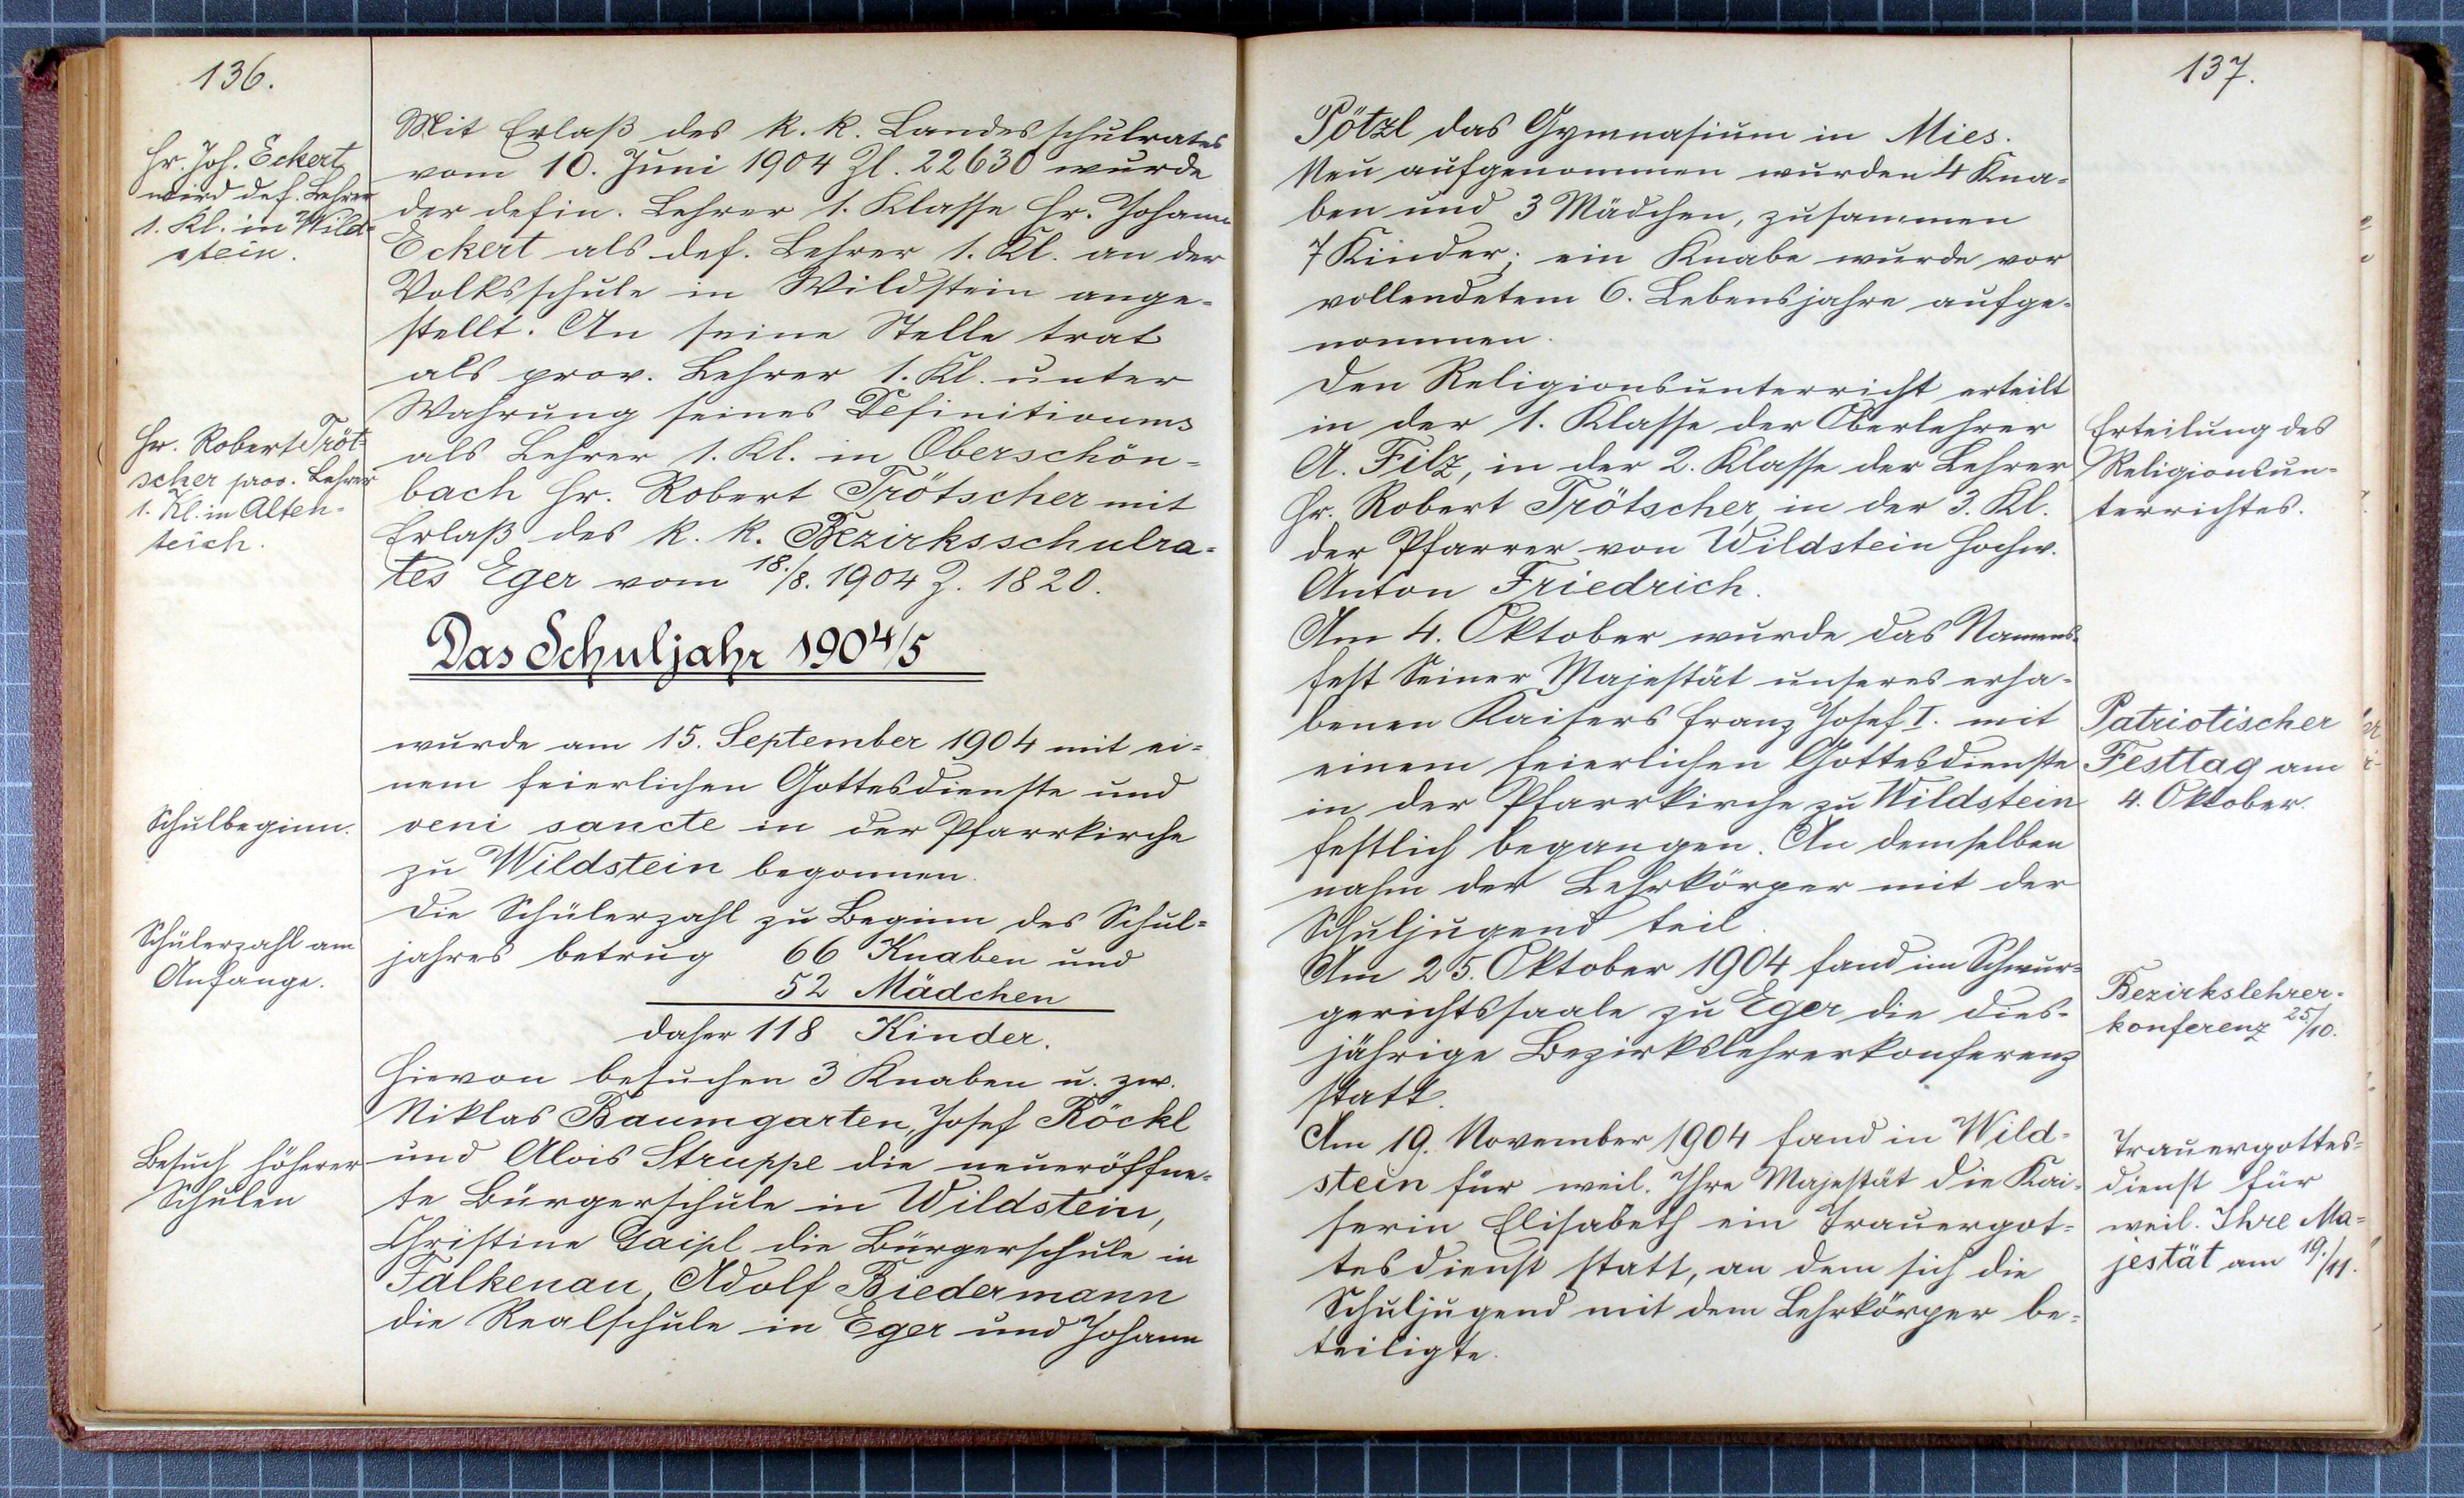 136.
Hr. Joh. Eckert
wird def. Lehrer
1. Kl. in Wild-
stein.
Mit Erlaß des k. k. Landesschulrates
vom 10. Juni 1904 Zl. 22630 wurde
der defin. Lehrer 1. Klasse Hr. Johann
Eckert als def. Lehrer 1. Kl. an der
Volksschule in Wildstein ange-
stellt. An seine Stelle trat
als prov. Lehrer 1. Kl. unter
Wahrung seines Definitivums
Hr. Robert Tröt-
scher prov. Lehrer
1. Kl. in Alten-
teich.
als Lehrer 1. Kl. in Oberschön-
bach Hr. Robert Trötscher mit
Erlaß des k. k. Bezirksschulra-
tes Eger vom 18./8. 1904 Z. 1820.
Das Schuljahr 1904/5
wurde am 15. September 1904 mit ei-
nem feierlichen Gottesdienste und
Schulbeginn.
veni sancte in der Pfarrkirche
zu Wildstein begonnen.
Die Schülerzahl zu Beginn des Schul-
Schülerzahl am
Anfange.
jahres betrug 66 Knaben und
52 Mädchen
daher 118 Kinder.
Hievon besuchen 3 Knaben u. zw.
Niklas Baumgarten, Josef Röckl
Besuch höherer
Schulen
und Alois Struppe die neueröffne-
te Bürgerschule in Wildstein,
Christine Gaipl die Bürgerschule in
Falkenau, Adolf Biedermann
die Realschule in Eger und Johann
137.
Pötzl das Gymnasium in Mies.
Neu aufgenommen wurden 4 Kna-
ben und 3 Mädchen, zusammen
7 Kinder; ein Knabe wurde vor
vollendetem 6. Lebensjahre aufge-
nommen.
Den Religionsunterricht erteilt
in der 1. Klasse der Oberlehrer
A. Filz, in der 2. Klasse der Lehrer
Hr. Robert Trötscher, in der 3. Kl.
der Pfarrer von Wildstein Hochw.
Anton Friedrich.
Erteilung des
Religionsun-
terrichtes.
Am 4. Oktober wurde das Namens-
fest Seiner Majestät unseres erha-
benen Kaisers Franz Josef I. mit
einem feierlichen Gottesdienste
in der Pfarrkirche zu Wildstein
festlich begangen. An demselben
nahm der Lehrkörper mit der
Schuljugend teil.
Patriotischer
Festtag am
4. Oktober.
Am 25. Oktober 1904 fand im Schwur-
gerichtssaale zu Eger die dies-
jährige Bezirkslehrerkonferenz
statt.
Bezirkslehrer-
konferenz 25/10.
Am 19. November 1904 fand in Wild-
stein für weil. Ihre Majestät die Kai-
serin Elisabeth ein Trauergot-
tesdienst statt, an dem sich die
Schuljugend mit dem Lehrkörper be-
teiligte.
Trauergottes-
dienst für
weil. Ihre Ma-
jestät am 19./11.